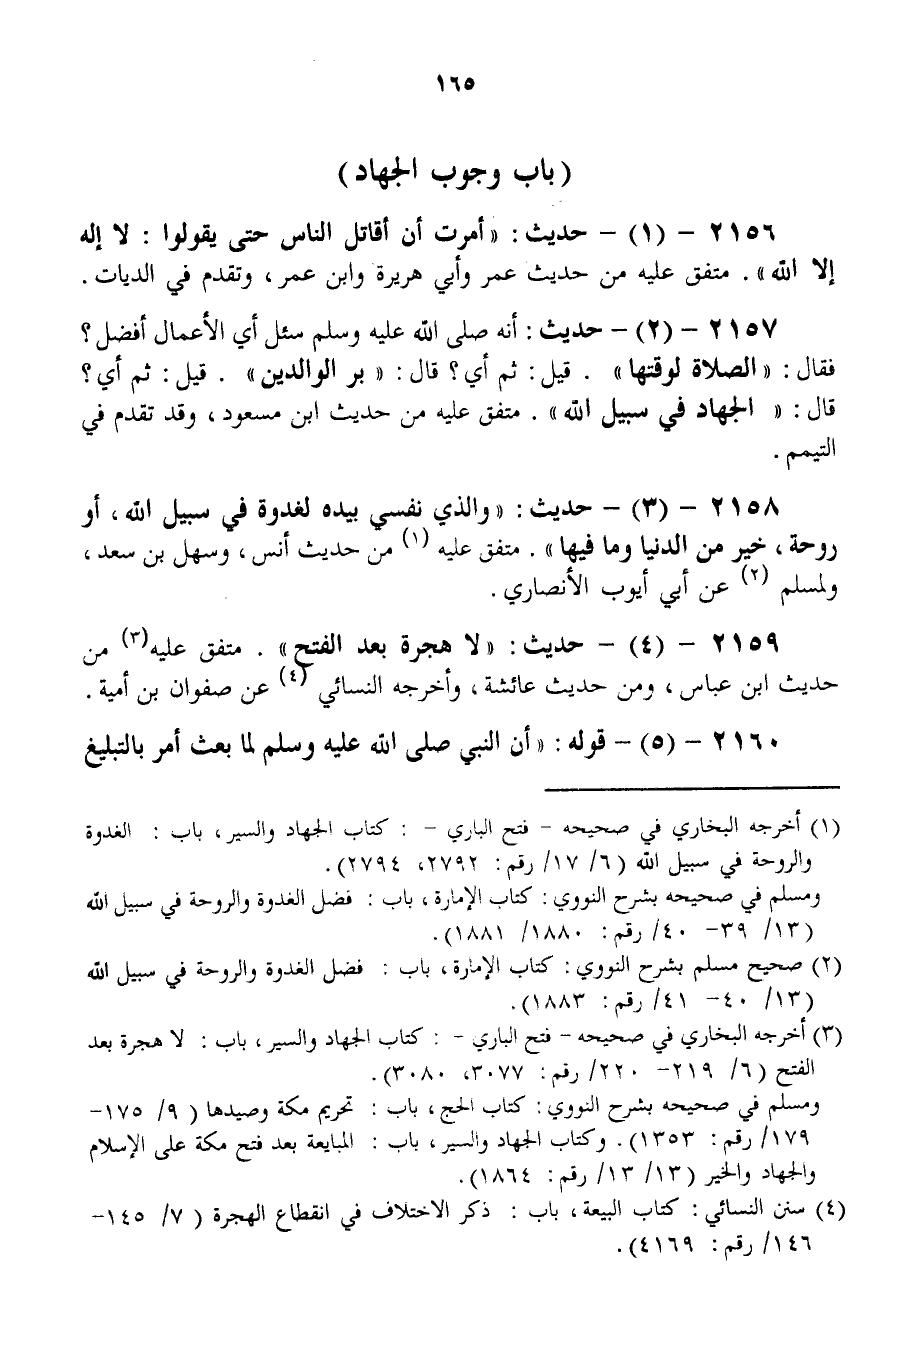 ١٦٥
(باب وجوب الجهاد)
٢١٥٦ - (١) - حديث: «أمرت أن أقاتل الناس حتى يقولوا : لا إله
إلا الله» . متفق عليه من حديث عمر وأبي هريرة وابن عمر ، وتقدم في الديات .
٢١٥٧ - (٢) - حديث : أنه صلى الله عليه وسلم سئل أي الأعمال أفضل؟
فقال : «الصلاة لوقتها» . قيل : ثم أي؟ قال : « بر الوالدين» . قيل : ثم أي؟
قال : « الجهاد في سبيل الله» . متفق عليه من حديث ابن مسعود ، وقد تقدم في
التيمم .
٢١٥٨ - (٣) - حديث : «والذي نفسي بيده لغدوة في سبيل الله ، أو
روحة ، خير من الدنيا وما فيها» . متفق عليه (١) من حديث أنس ، وسهل بن سعد ،
ولمسلم (٢) عن أبي أيوب الأنصاري .
٢١٥٩ - (٤) - حديث : «لا هجرة بعد الفتح» . متفق عليه(٣) من
حديث ابن عباس ، ومن حديث عائشة ، وأخرجه النسائي (٤) عن صفوان بن أمية .
٢١٦٠ - (٥) - قوله : «أن النبي صلى الله عليه وسلم لما بعث أمر بالتبليغ
(١) أخرجه البخاري في صحيحه - فتح الباري - : كتاب الجهاد والسير ، باب : الغدوة
والروحة في سبيل الله (٦/ ١٧/ رقم: ٢٧٩٢، ٢٧٩٤).
ومسلم في صحيحه بشرح النووي : كتاب الإمارة ، باب : فضل الغدوة والروحة في سبيل الله
(١٣/ ٣٩- ٤٠/ رقم: ١٨٨٠/ ١٨٨١).
(٢) صحيح مسلم بشرح النووي : كتاب الإمارة ، باب : فضل الغدوة والروحة في سبيل الله
(١٣/ ٤٠- ٤١/ رقم: ١٨٨٣).
(٣) أخرجه البخاري في صحيحه - فتح الباري - : كتاب الجهاد والسير ، باب : لا هجرة بعد
الفتح (٦/ ٢١٩- ٢٢٠/ رقم: ٣٠٧٧، ٣٠٨٠).
ومسلم في صحيحه بشرح النووي : كتاب الحج ، باب : تحريم مكة وصيدها ( ٩/ ١٧٥-
١٧٩/ رقم: ١٣٥٣). وكتاب الجهاد والسير ، باب : المبايعة بعد فتح مكة على الإسلام
والجهاد والخير (١٣/ ١٣/ رقم: ١٨٦٤).
(٤) سنن النسائي : كتاب البيعة ، باب : ذكر الاختلاف في انقطاع الهجرة ( ٧/ ١٤٥-
١٤٦/ رقم: ٤١٦٩).